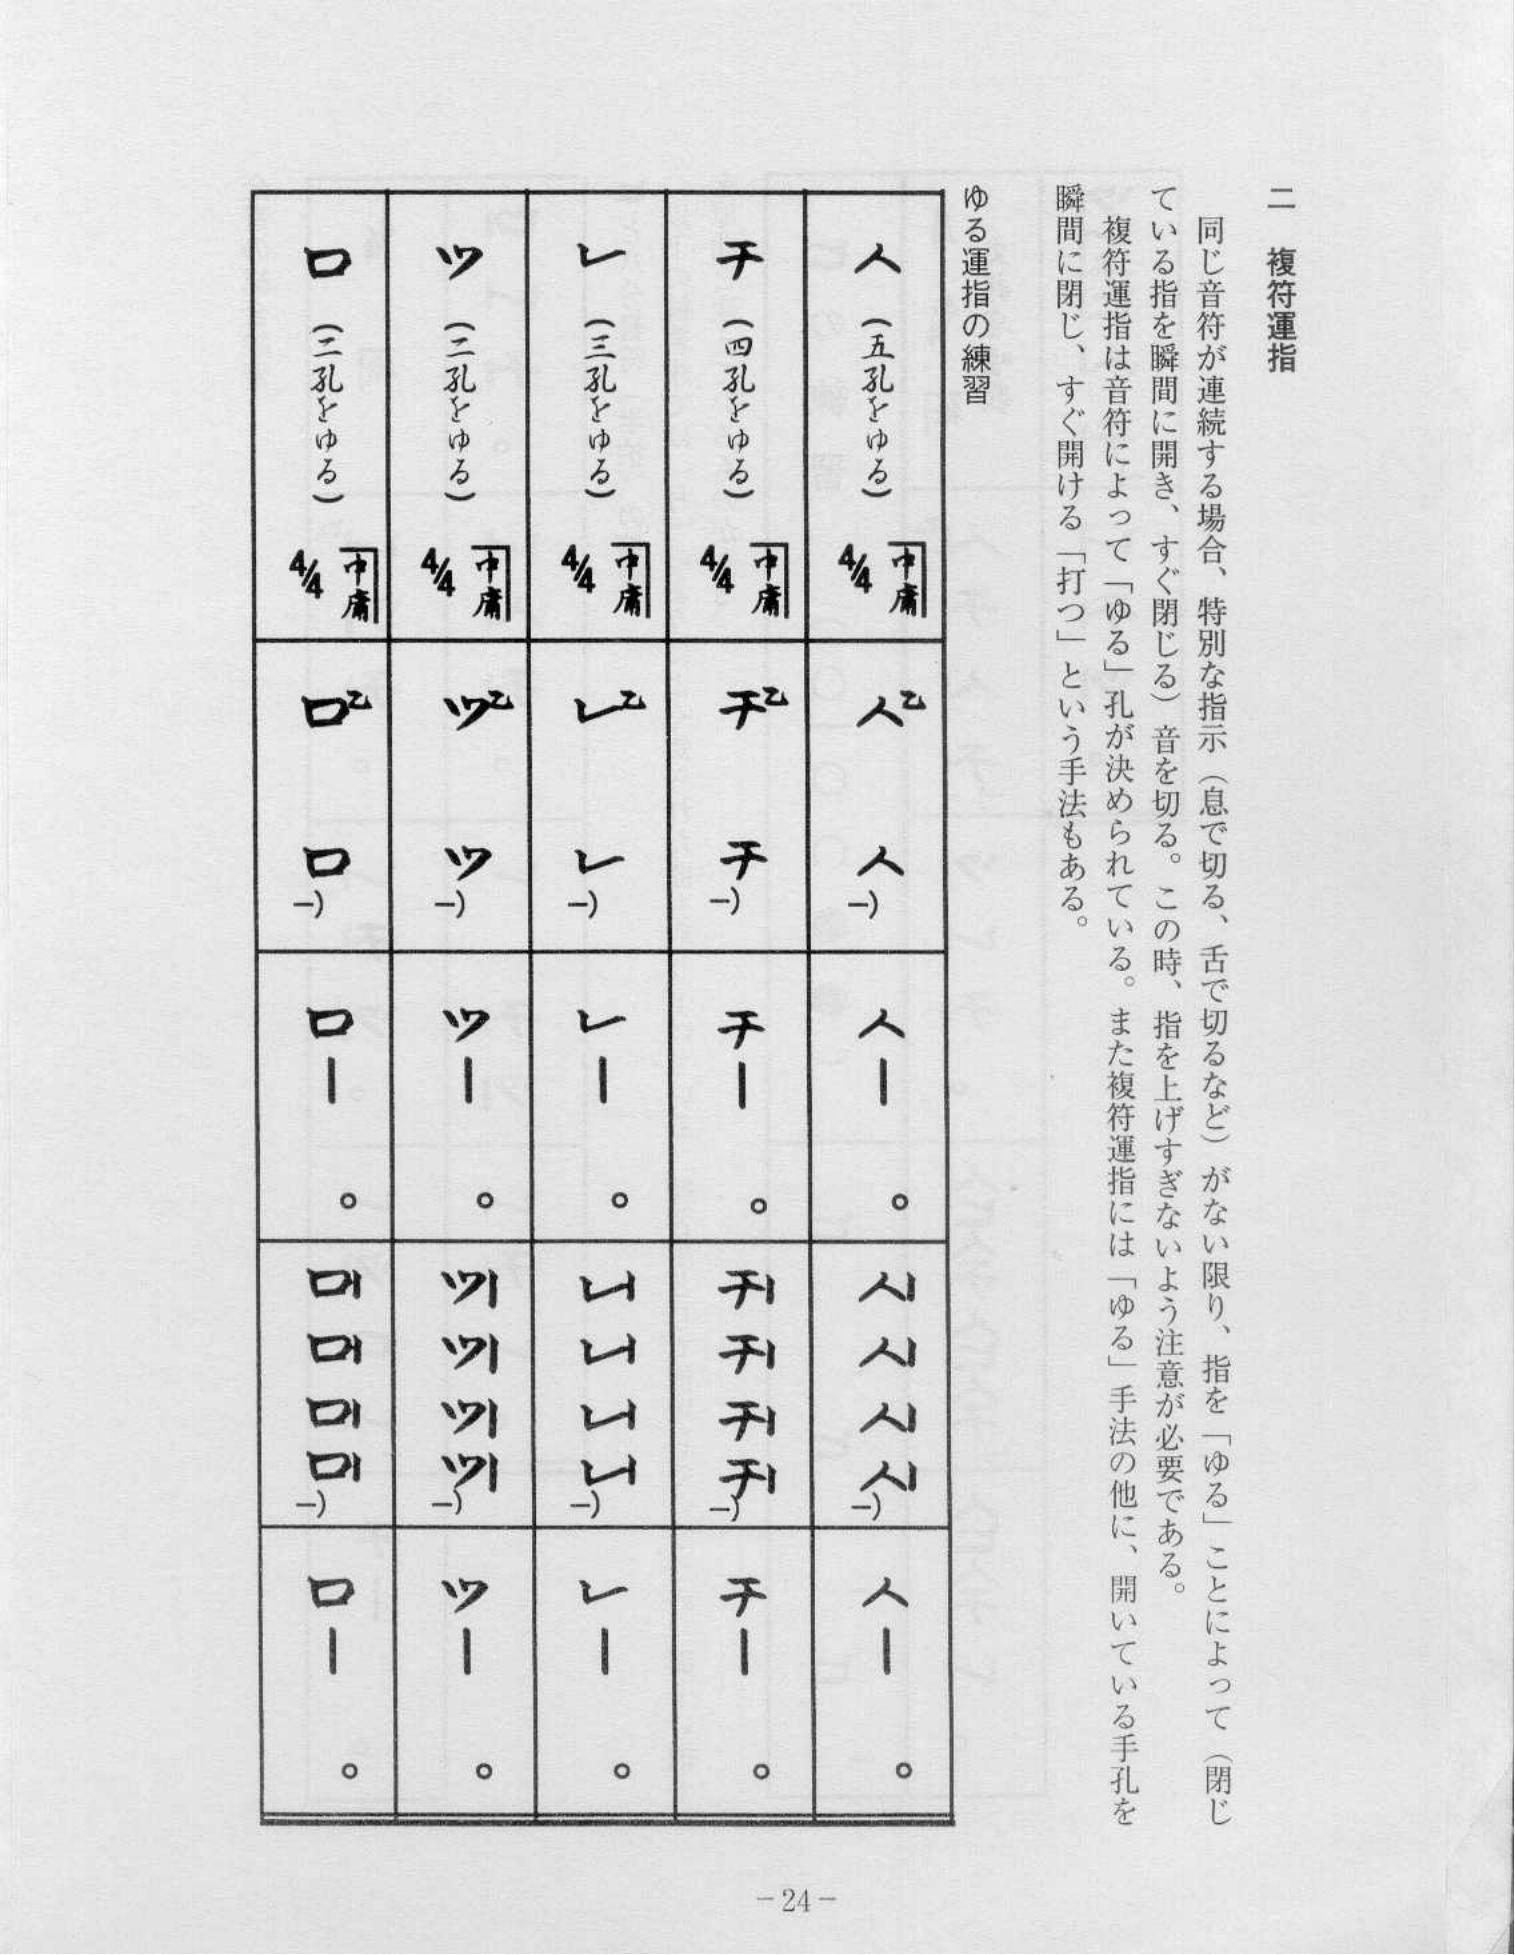 二　複符運指
同じ音符が連続する場合、特別な指示（息で切る、舌で切るなど）がない限り、指を「ゆる」ことによって（閉じ
ている指を瞬間に開き、すぐ閉じる）音を切る。この時、指を上げすぎないよう注意が必要である。
複符運指は音符によって「ゆる」孔が決められている。また複符運指には「ゆる」手法の他に、開いている手孔を
瞬間に閉じ、すぐ開ける「打つ」という手法もある。
ゆる運指の練習
人（五孔をゆる） 中庸 4/4 人乙 人 人ー 。 人 人 人 人 人ー 。
チ（四孔をゆる） 中庸 4/4 チ乙 チ チー 。 チ チ チ チ チー 。
レ（三孔をゆる） 中庸 4/4 レ乙 レ レー 。 レ レ レ レ レー 。
ツ（二孔をゆる） 中庸 4/4 ツ乙 ツ ツー 。 ツ ツ ツ ツ ツー 。
ロ（二孔をゆる） 中庸 4/4 ロ乙 ロ ロー 。 ロ ロ ロ ロ ロー 。
－24－